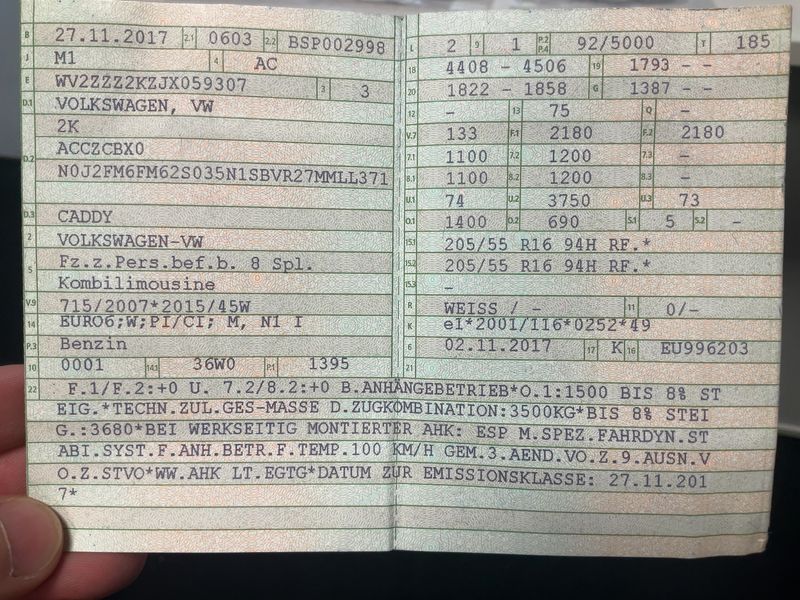 B 27.11.2017 2.1 0603 2.2 BSP002998
J M1 4 AC
E WV2ZZZ2KZJX059307 3 3
D.1 VOLKSWAGEN, VW
2K
D.2 ACCZCBX0
N0J2FM6FM62S035N1SBVR27MMLL371
D.3 CADDY
2 VOLKSWAGEN-VW
5 Fz.z.Pers.bef.b. 8 Spl.
Kombilimousine
V.9 715/2007*2015/45W
14 EURO6;W;PI/CI; M, N1 I
P.3 Benzin
10 0001 14.1 36W0 P.1 1395
L 2 9 1 P.2 P.4 92/5000 T 185
18 4408 - 4506 19 1793 - -
20 1822 - 1858 G 1387 - -
12 - 13 75 Q -
V.7 133 F.1 2180 F.2 2180
7.1 1100 7.2 1200 7.3 -
8.1 1100 8.2 1200 8.3 -
U.1 74 U.2 3750 U.3 73
O.1 1400 O.2 690 S.1 5 S.2 -
15.1 205/55 R16 94H RF.*
15.2 205/55 R16 94H RF.*
15.3 -
R WEISS / - 11 0/-
K e1*2001/116*0252*49
6 02.11.2017 17 K 16 EU996203
21
22 F.1/F.2:+0 U. 7.2/8.2:+0 B.ANHÄNGEBETRIEB*O.1:1500 BIS 8% ST
EIG.*TECHN.ZUL.GES-MASSE D.ZUGKOMBINATION:3500KG*BIS 8% STEI
G.:3680*BEI WERKSEITIG MONTIERTER AHK: ESP M.SPEZ.FAHRDYN.ST
ABI.SYST.F.ANH.BETR.F.TEMP.100 KM/H GEM.3.AEND.VO.Z.9.AUSN.V
O.Z.STVO*WW.AHK LT.EGTG*DATUM ZUR EMISSIONSKLASSE: 27.11.201
7*